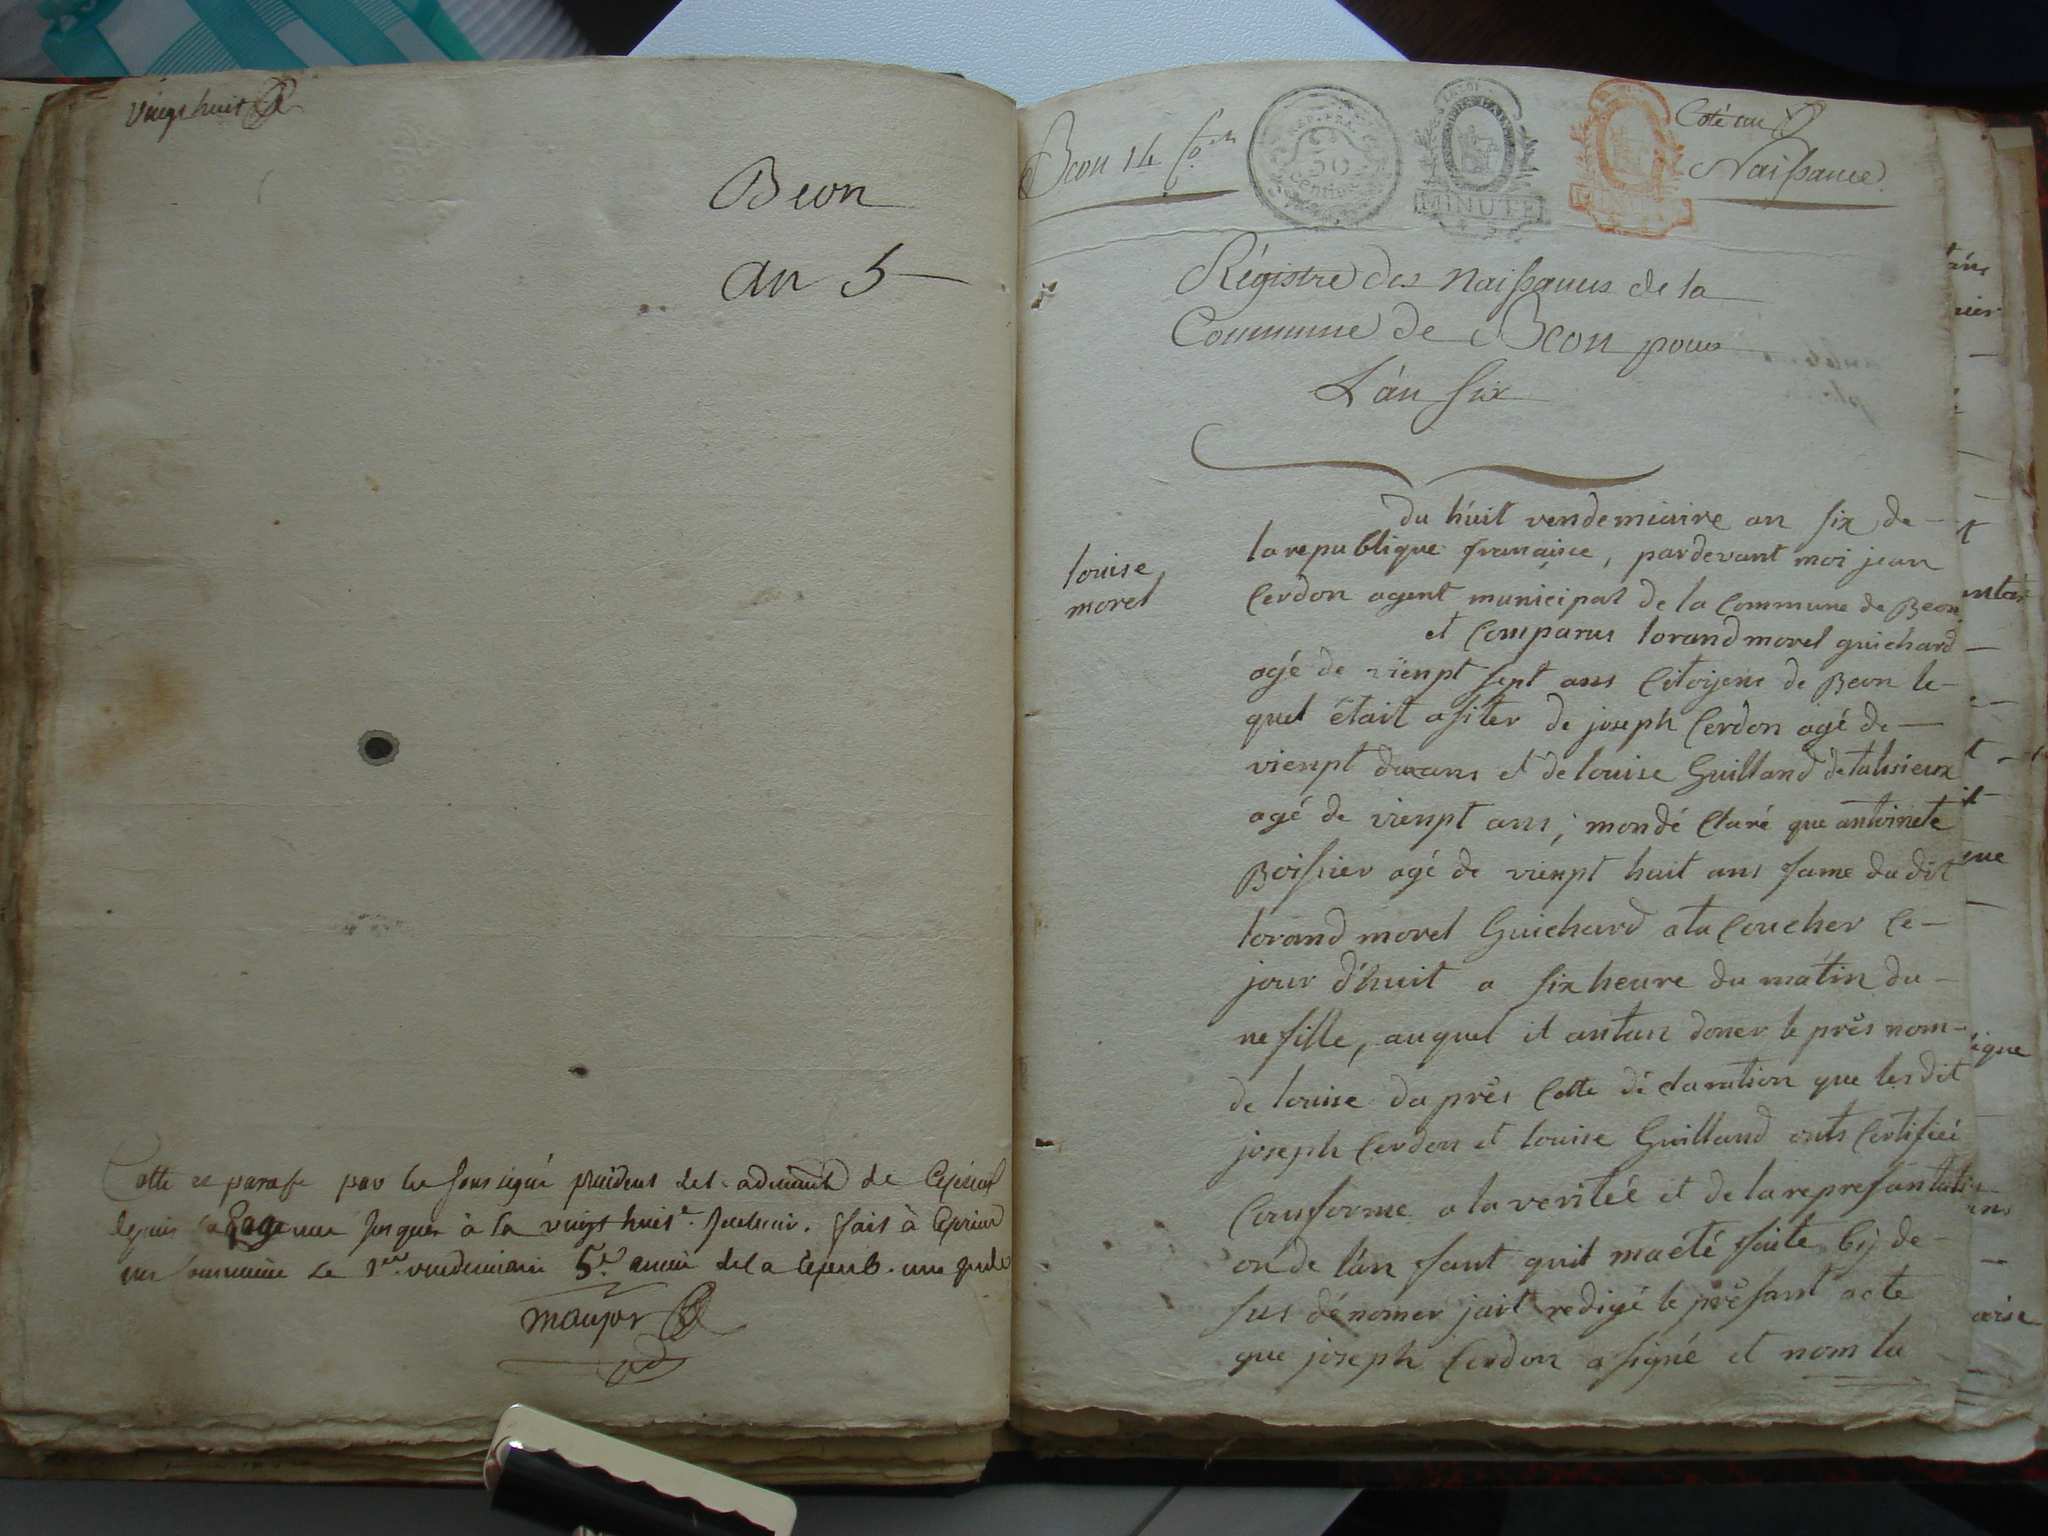 Vingt huit
Beon
an 5
Cotté et parafé par le soussigné président de l'administ de Ceyzerieu
depuis la page une jusques à la vingt huit. fait à Ceyzerieu
le 1er vendemiaire 5e année de la Repub. une
maujor
Beon 14
REP. FRA.
50
centimes
MINUTE
Coté un
Naissance
Régistre des Naissances de la
Commune de Beon pour
L'an six
louise
morel
du huit vendemiaire an six de
la republique franaisce, pardevant moi jean
Cerdon agent municipal de la Commune de Beon
et Comparus lorand morel guichard
agé de vienpt sept ans Citoijens de Beon le-
quel était asiter de joseph Cerdon agé de
vienpt duxans et de louise Guilland de talisieux
agé de vienpt ans, mondé Claré que antoinete
Boissier agé de vienpt huit ans fame du dit
lorand morel Guichard ata Coucher Ce-
jour d'huit a six heure du matin du-
ne fille, auquel il antan doner le prés nom-
de louise da prés Cette dé claration que les dit
joseph Cerdon et louise Guilland onts Certifiéé
Conforme a la veritéé et de la represantation
on de l'an fant quil maété faite Cij de-
sus dénomer jait redigé le présant acte
que joseph Cerdon a signé et nom la